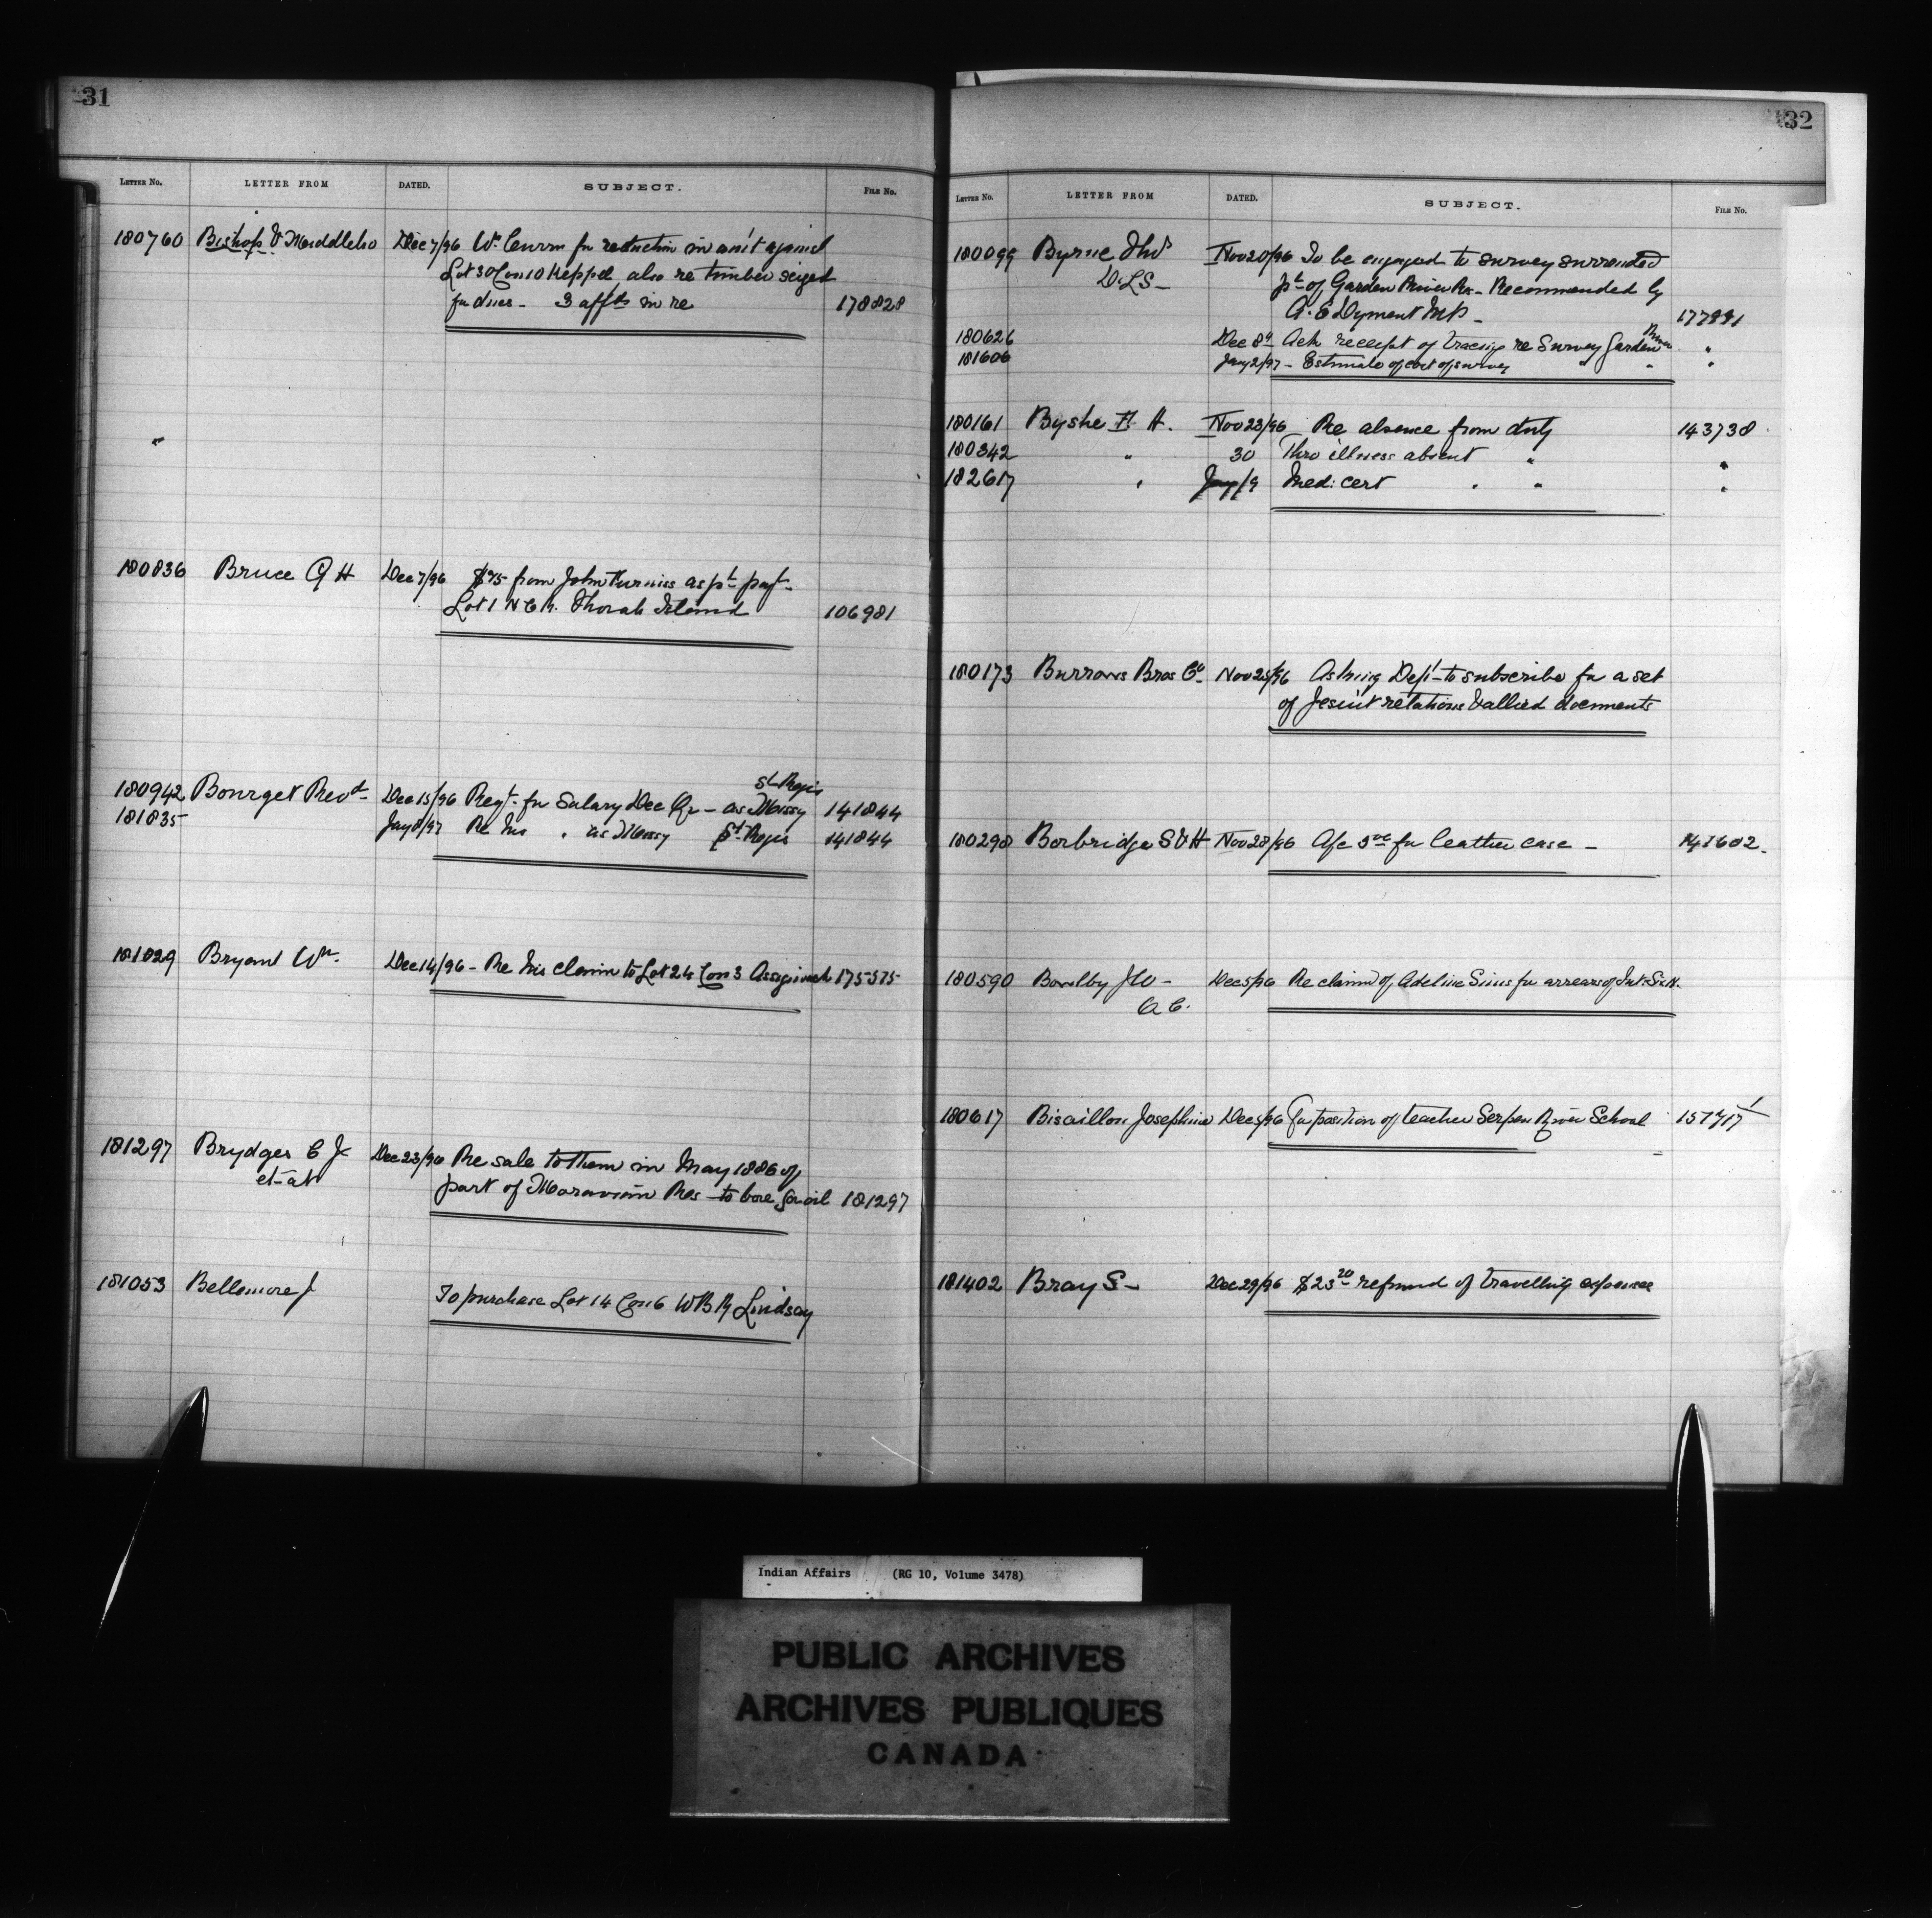 31
LETTER NO. LETTER FROM DATED. SUBJECT. FILE NO.
180760 Bishop & Middlebro Dec 7/96 Wm for reduction in am't against
Lot 30 Con 10 Keppel, also re timber seized
for dues - 3 affts in re 178828
180836 Bruce G H Dec 7/96 $75 from John Furniss as pt payt
Lot 1 Thorah Island 106981
St Regis
180942 Bourget Revd Dec 15/96 Reqt for Salary Dec Qr - as Missy 141844
181835 Jany 8/97 Re his " as Missy St Regis 141844
181029 Bryant Wm Dec 14/96 - Re his claim to Lot 24 Con 3 Assiginack 175375
181297 Brydges C J Dec 23/96 Re sale to them in May 1886 of
et al part of Moravian Res to bore for oil 181297
181053 Bellemore J
To purchase Lot 14 Con 6 WBR Lindsay
32
LETTER NO. LETTER FROM DATED. SUBJECT. FILE NO.
180099 Byrne Thos Nov 20/96 To be engaged to survey surrended
D.L.S - pt of Garden River Re - Recommended by
A. E Dyment M.P. -
180626 Dec 8th Ack receipt of tracing re Survey Garden River "
181606 Jany 2/97 - Estimate of cost of survey " " "
180161 Byshe F. H. Nov 23/96 Re absence from duty 143738
180342 " 30 Thro illness absent " "
182617 " Jany/9 Med: cert " " "
180173 Burrows Bros Co Nov 25/96 Asking Dept to subscribe for a set
of Jesuit relations & allied documents
180298 Borbridge S & H Nov 28/96 A/c for leather case -
180590 Bowlby J W - Dec 5/96 Re claim of Adeline Sims for arrears of Int: Six N.
Q C.
180617 Bisaillon Josephine Dec 5/96 For position of teacher Serpen River School 157717
181402 Bray S - Dec 29/96 $23 20 refund of travelling expenses
Indian Affairs (RG 10, Volume 3478)
PUBLIC ARCHIVES
ARCHIVES PUBLIQUES
CANADA